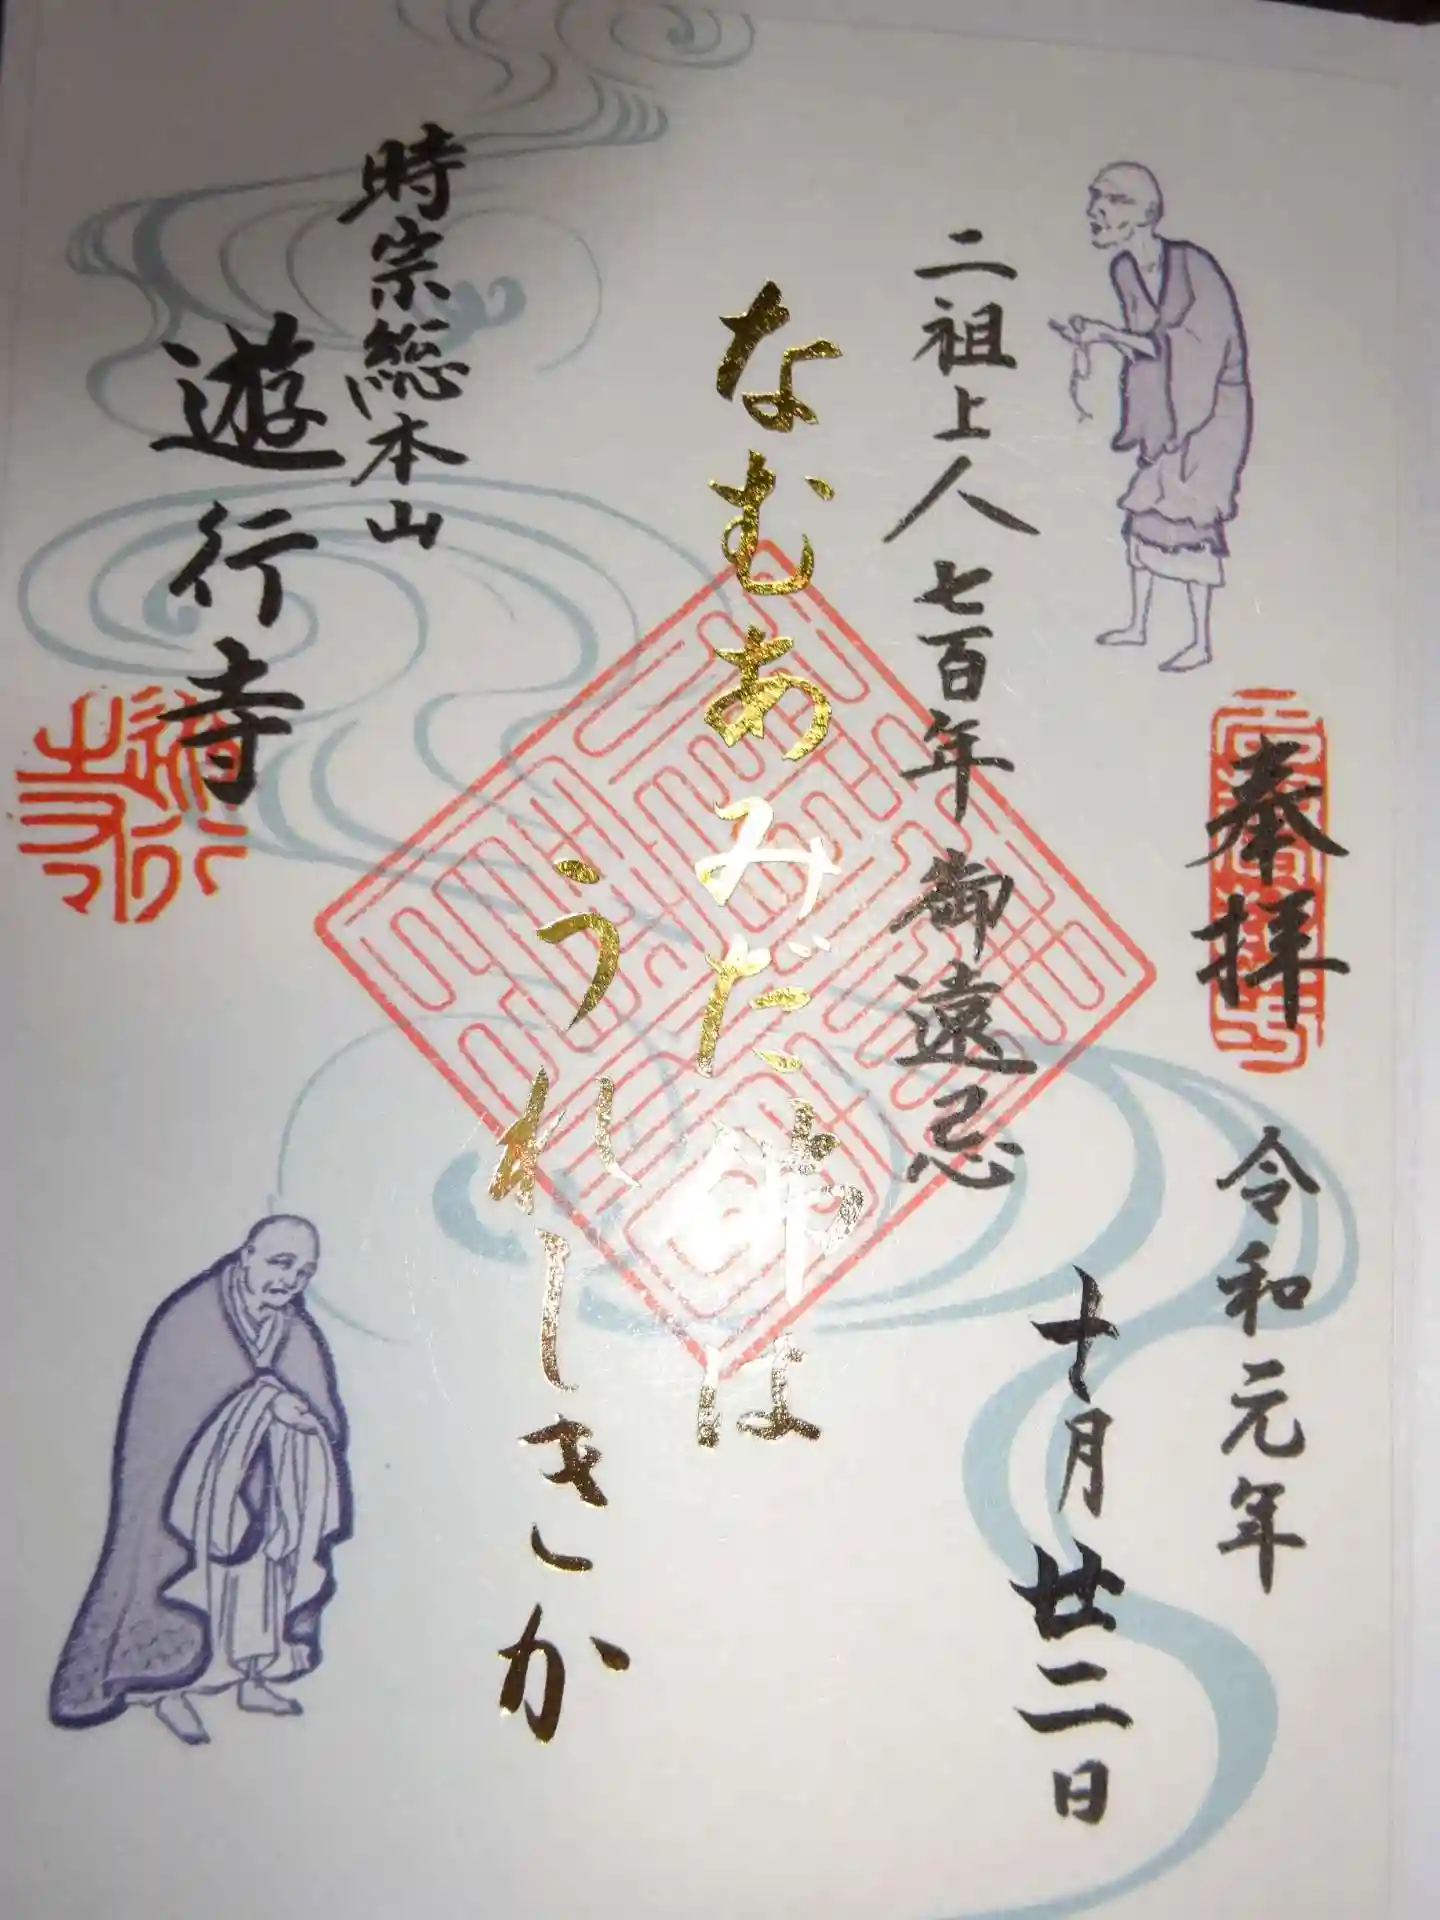 奉拝
令和元年
十月廿二日
二祖上人七百年御遠忌
なむあみだ佛は
うれしきか
時宗総本山
遊行寺